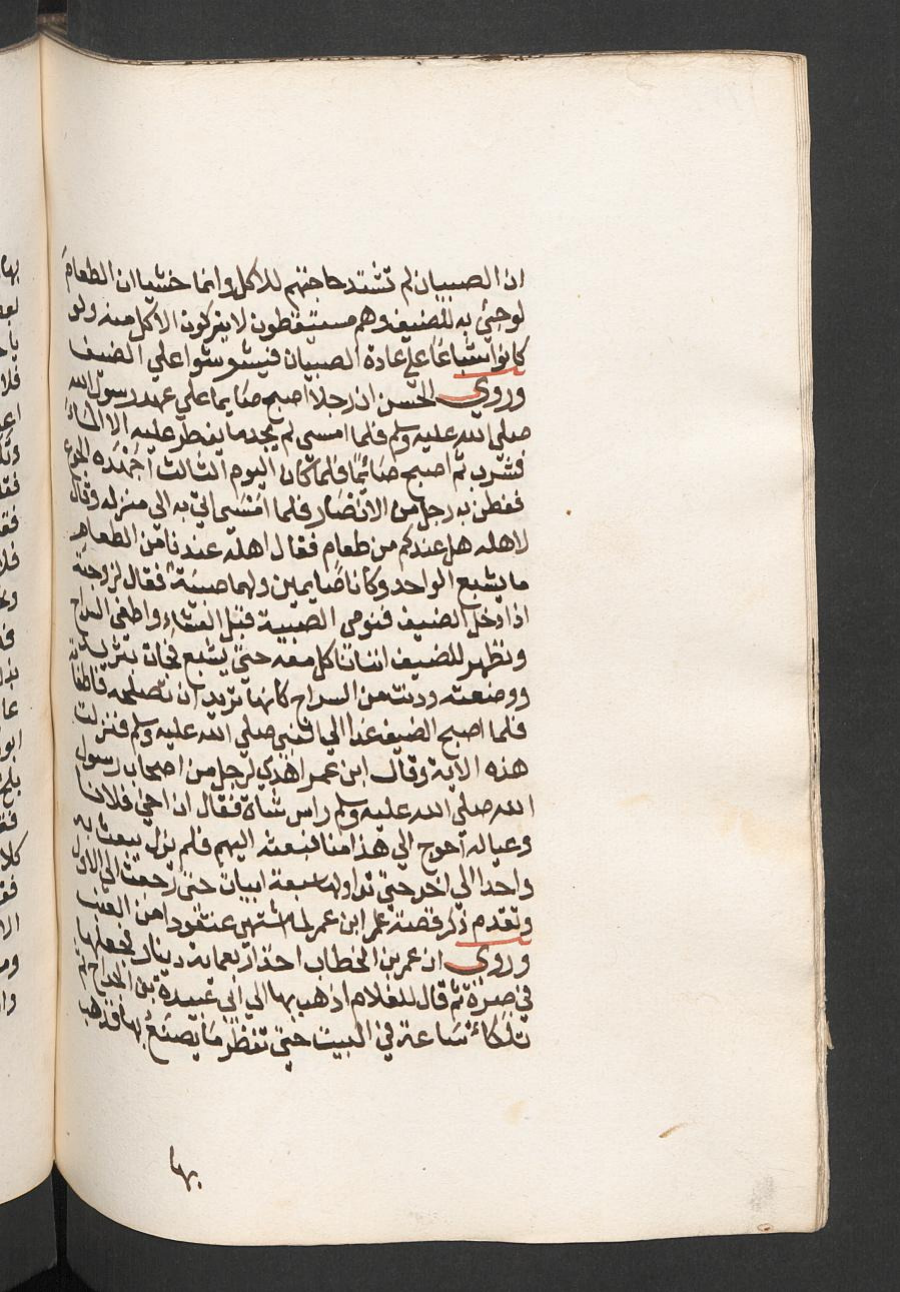 ان الصبيان لم تشتد حاجتهم للاكل وانما خشيا ان الطعام
لوجئ به للضيف وهم مستيقظون لا يتركون الاكل منه ولو
كانوا شباعا على عادة الصبيان فيشوشوا علي الضيف
وروي الحسن ان رجلا اصبح صايما علي عهد رسول الله
صلي الله عليه وسلم فلما امسى لم يجد ما يفطر عليه الا الماء
فشرب ثم اصبح صائما فلما كان اليوم الثالث اجهده الجوع
ففطن به رجل من الانصار فلما امسى اتي به الي منزله وقال
لاهله هل عندكم من طعام فقال اهله عندنا من الطعام
ما يشبع الواحد وكانا صايمين ولهما صبية فقال لزوجته
اذا دخل الضيف فنومي الصبية قبل العشاء واطفي السراج
ونظهر للضيف اننا ناكل معه حتى يشبع فجات بثريدة
ووضعته ودنت من السراج كانها تريد ان تصلحه فاطفا
فلما اصبح الضيف غدا الي النبي صلي الله عليه وسلم فنزلت
هذه الاية وقال ابن عمر اهدي لرجل من اصحاب رسول
الله صلي الله عليه وسلم راس شاة فقال ان اخي فلانا
وعياله احوج الي هذا منا فبعثه اليهم فلم يزل يبعث به
واحدا الي اخر حتي تداولها سبعة ابيات حتى رجعت الي الاول
وتقدم ذكر قصة ابن عمر لما اشتهى عنقودا من العنب
وروي ان عمر بن الخطاب اخذ اربعماية دينار فجعلها
في صرة ثم قال للغلام اذهب بها الي ابي عبيدة بن الجراح ثم
تلكاء ساعة في البيت حتى تنظر ما يصنع بها فذهب
بها